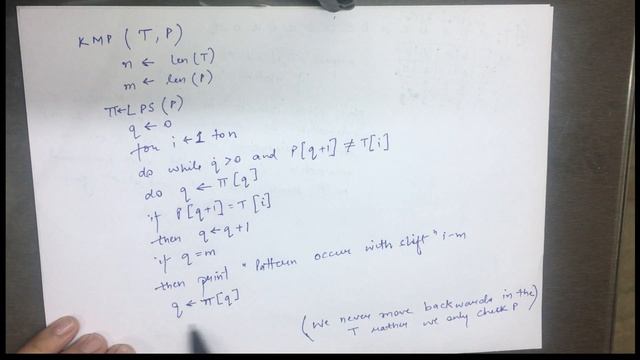 KMP (T, P)
n ← len(T)
m ← len(P)
π←LPS(P)
q ← 0
for i ← 1 to n
do while q>0 and P[q+1] ≠ T[i]
do q ← π[q]
if P[q+1] = T[i]
then q ← q+1
if q = m
then print "Pattern occur with shift" i-m
q ← π[q]
(we never move backwards in the
T rather we only check P)